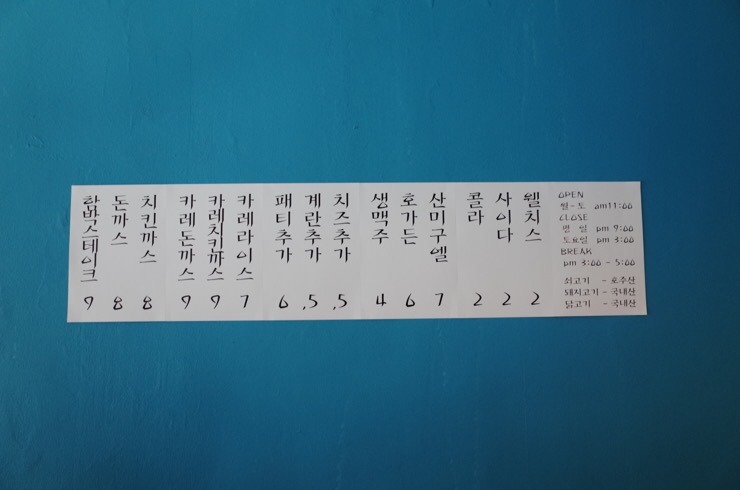 함박스테이크 9
돈까스 8
치킨까스 8
카레돈까스 9
카레치킨까스 9
카레라이스 7
패티추가 6
계란추가 .5
치즈추가 .5
생맥주 4
호가든 6
산미구엘 7
콜라 2
사이다 2
웰치스 2
OPEN
월-토 am11:00
CLOSE
평 일 pm 9:00
토요일 pm 3:00
BREAK
pm 3:00 - 5:00
쇠고기 - 호주산
돼지고기 - 국내산
닭고기 - 국내산